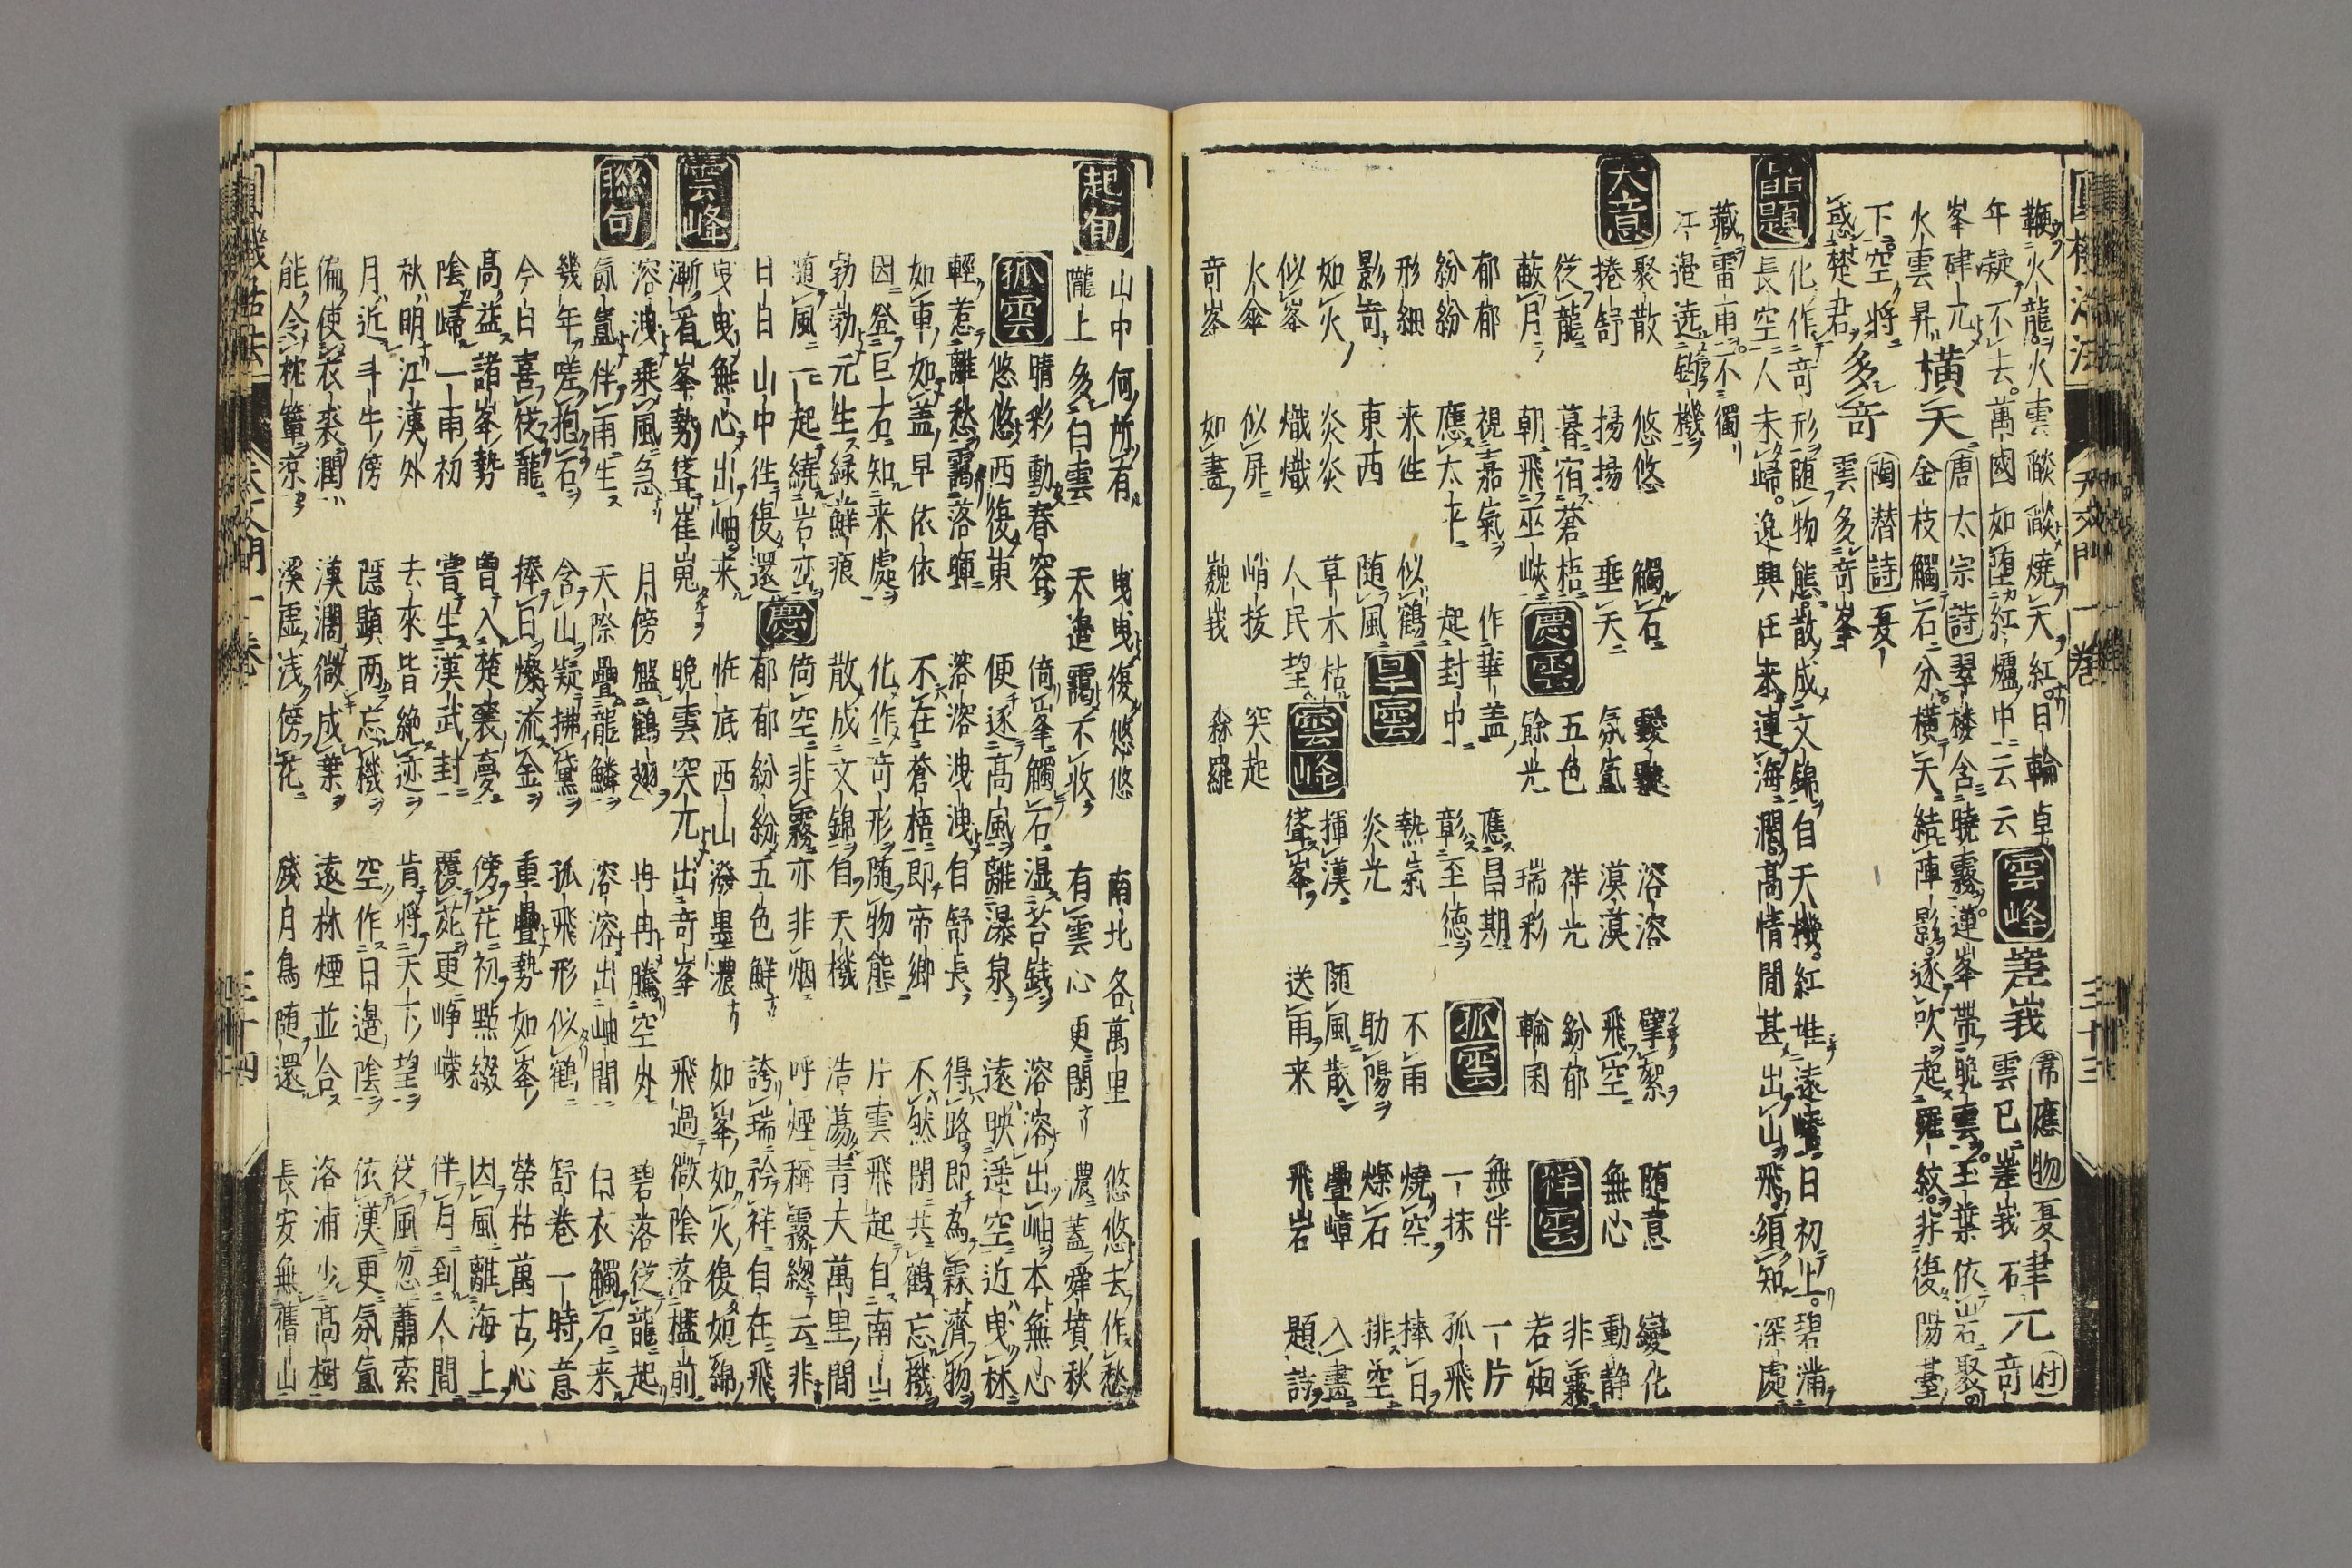 鞭火龍火雲燄燄燒天紅日輪卓
午凝不去萬國如堕紅爐中云云 雲峰 嵳峩 雲已嵳峩 韋應物夏 硉兀 石奇
峯硉兀 唐太宗詩 翠楼含曉霧蓮峯帯晩雲玉葉依岩聚
火雲昇 横天 金枝觸石分横天結陣影逐吹起羅紋非復陽䑓
下空将 陶潜詩夏
惑楚君 多奇 雲多奇峯
品題 化作奇形随物態散成文錦自天機紅堆遠嶂日初上碧滿
長空人未歸逸興任來連海濶高情閒甚出山飛須知深處
藏雷雨不獨
江邉遶釣機
大意 聚散 悠悠 觸石 靉靆 溶溶 擘絮 随意 變化
捲舒 揚揚 垂天 氛氳 漠漠 飛空 無心 動静
従龍 暮宿蒼梧 慶雲 五色 祥光 紛郁 祥雲 非霧
蔽月 朝飛巫峡 餘光 瑞彩 輪囷 若烟
郁郁 視嘉氣 作華盖 應昌期 孤雲 無伴 一片
紛紛 應太平 起封中 彰至徳 一抹 孤飛
形細 来往 似鶴 旱雲 熱氣 不雨 燒空 捧日
影奇 東西 随風 炎光 助陽 爍石 排空
如火 炎炎 草木枯 雲峰 揮漢 随風散 疊嶂 入畫
似峯 熾熾 人民望 聳峯 送雨来 飛岩 題詩
火傘 似屏 峭抜 突起
奇峯 如畫 巍峩 森羅
起句 山中何所有 曳曳復悠悠 南北各萬里 悠悠去作愁
隴上多白雲 天邉靄不收 有雲心更閑 濃蓋舜墳秋
孤雲 晴彩動春容 倚峯觸石湿苔銭 溶溶出岫本無心
悠悠西復東 便逐高風離瀑泉 遠映遥空近曳林
輕惹離愁靄落暉 溶溶洩洩自舒長 得路即為霖濟物
如車如盖早依依 不在蒼梧即帝郷 不然閑共鶴忘機
因登巨石知来處 化作奇形随物態 片雲飛起自南山
勃勃元生緑蘚痕 散成文錦自天機 浩蕩青天萬里間
随風一起繞岩巒 慶 倚空非霧亦非烟 呼煙稱霧總云非
日日山中往復還 郁郁紛紛五色鮮 誇瑞矜祥自在飛
雲峰 曳曳無心出岫来 恠底西山潑墨濃 如峯如火復如綿
漸看峯勢聳崔嵬 晩雲突兀出奇峯 飛過微陰落檻前
聯句 溶洩乘風急 月傍盤鶴翅 冉冉騰空外 碧落従龍起
氤氳伴雨生 天際疊龍鱗 溶溶出岫間 白衣觸石来
幾年嗟抱石 含山疑拂黛 孤飛形似鶴 舒巻一時意
今日喜従龍 捧日爍流金 重疊勢如峯 榮枯萬古心
高益諸峯勢 曽入楚襄夢 傍花初點綴 因風離海上
陰歸一雨初 嘗生漢武封 覆苑更崢嶸 伴月到人間
秋明江漢外 去來皆絶迹 肯将天下望 従風忽蕭索
月近斗牛傍 隠顕両忘機 空作日邉陰 依漢更氛氳
偏使衣裘潤 漠濶微成葉 遠林煙並合 洛浦少高樹
能令枕簟凉 溪虚浅傍花 残月鳥随還 長安無舊山